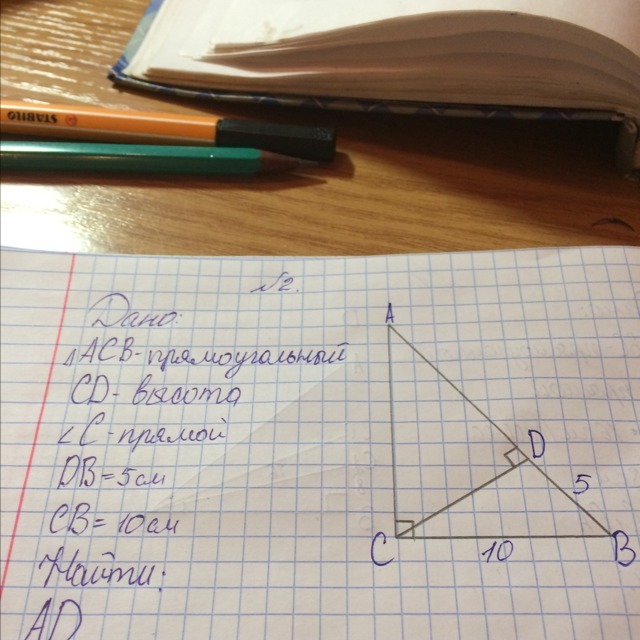 STABILO
№2.
Дано:
△ACB-прямоугольный
CD-высота
∠C-прямой
DB=5см
CB=10см
Найти:
AD
A
D
5
C
10
B